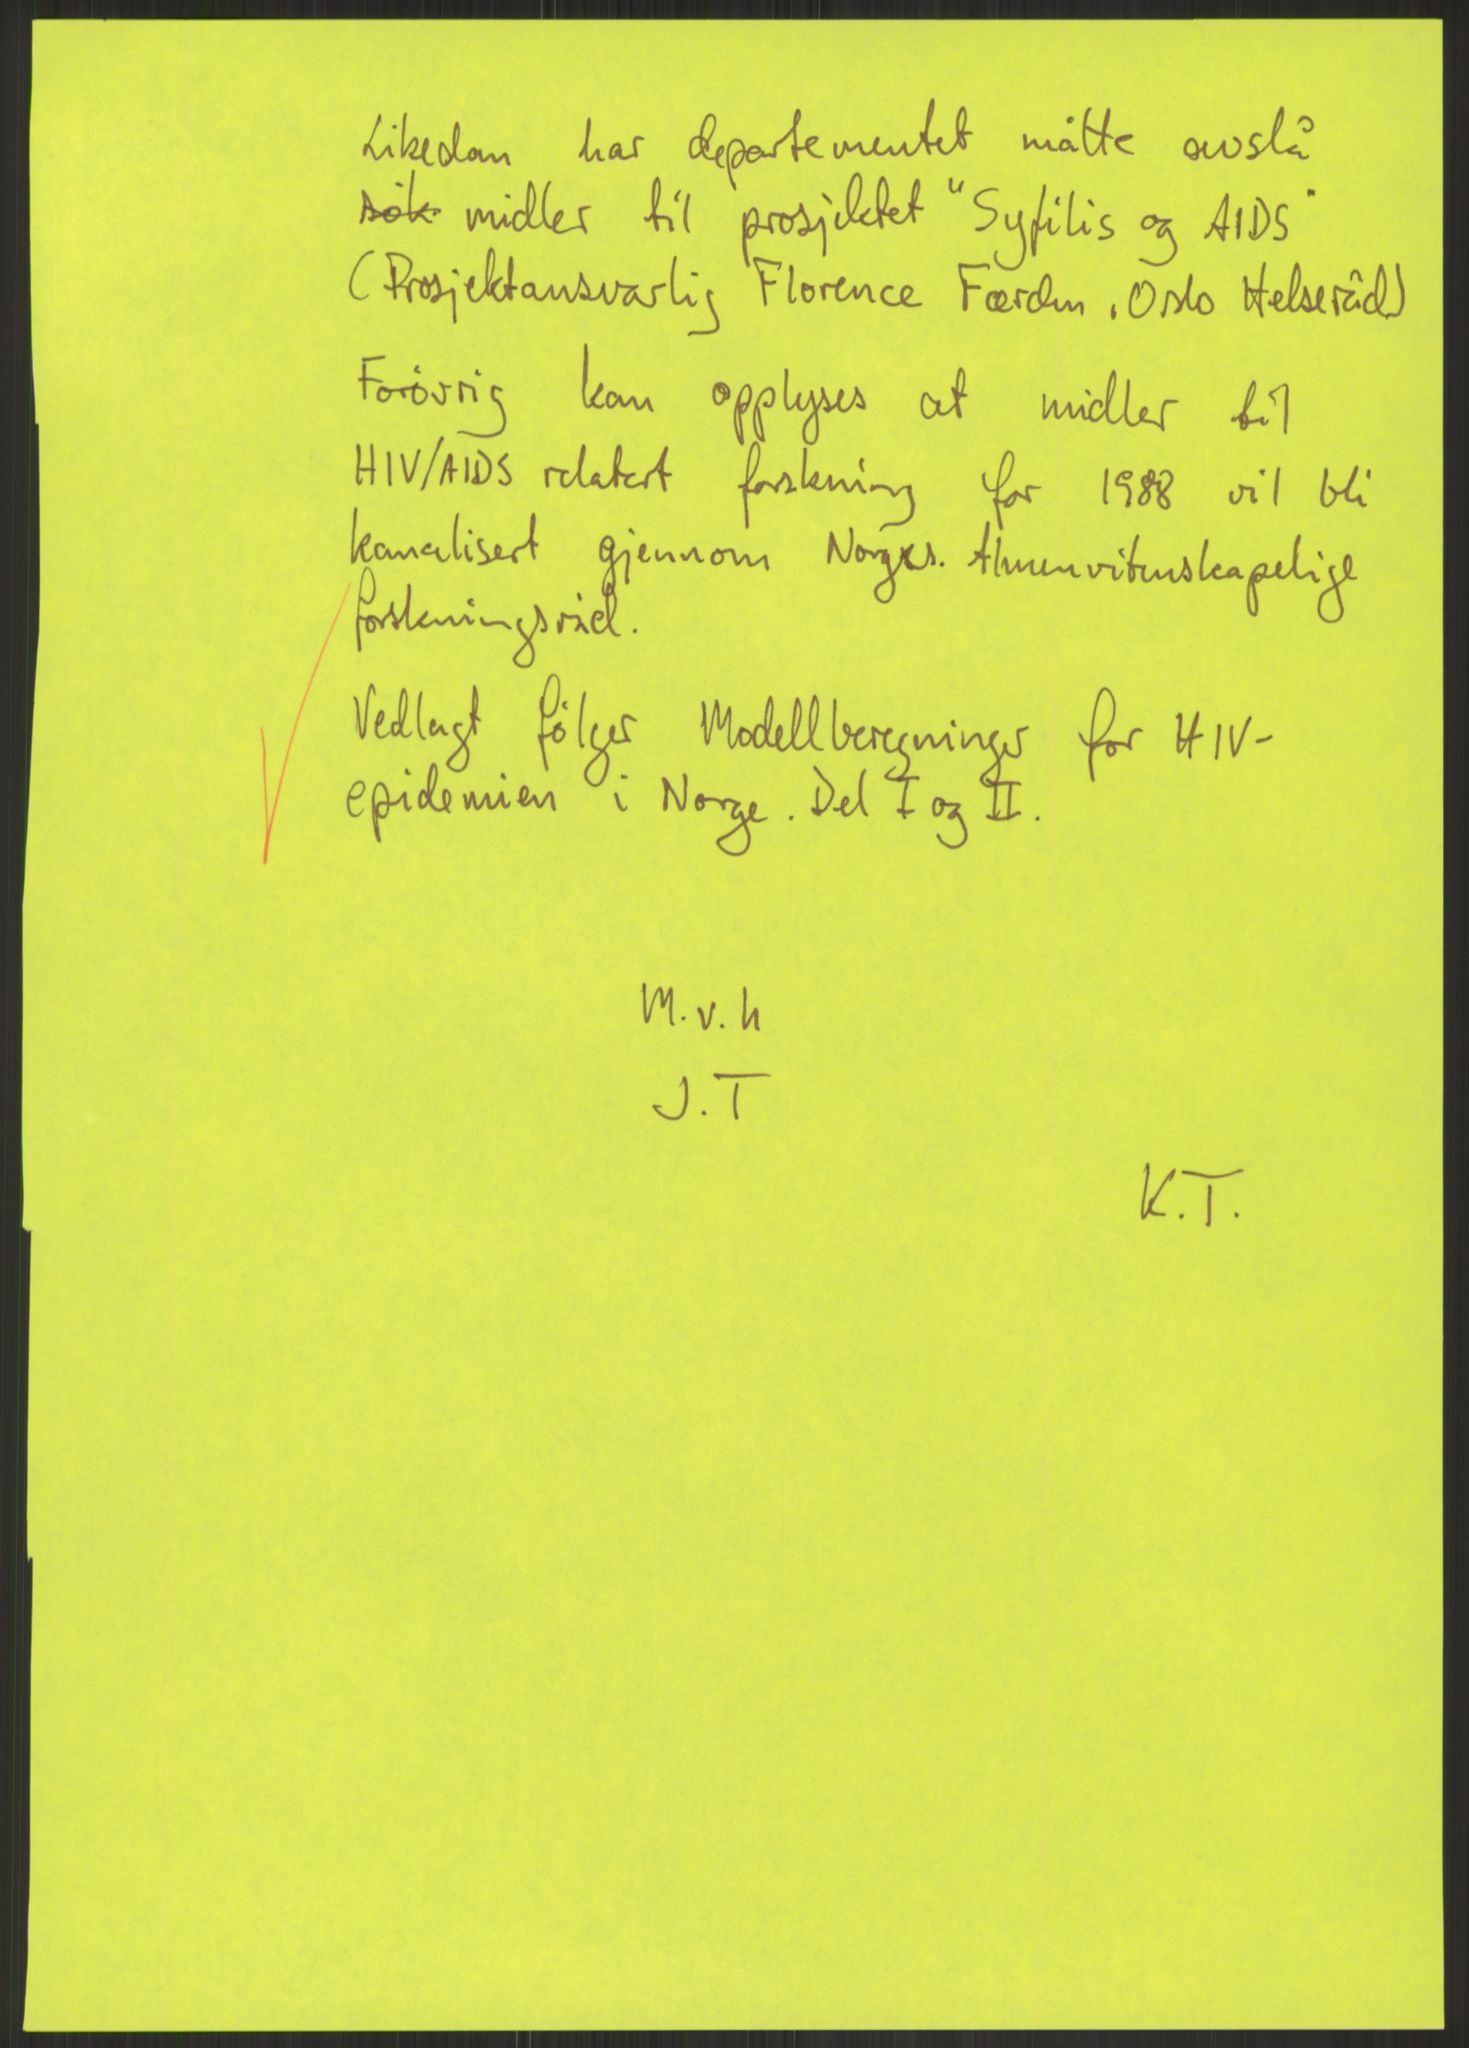 Likedan har departementet måtte avslå
søk midler til prosjektet "Syfilis og AIDS"
(Prosjektansvarlig Florence Færden, Oslo Helseråd)
Forøvrig kan opplyses at midler til
HIV/AIDS relatert forskning for 1988 vil bli
kanalisert gjennom Norges. Almenvitenskapelige
forskningsråd.
Vedlagt følger Modellberegninger for HIV-
epidemien i Norge. Del I og II.
M.v.h
J.T
K.T.